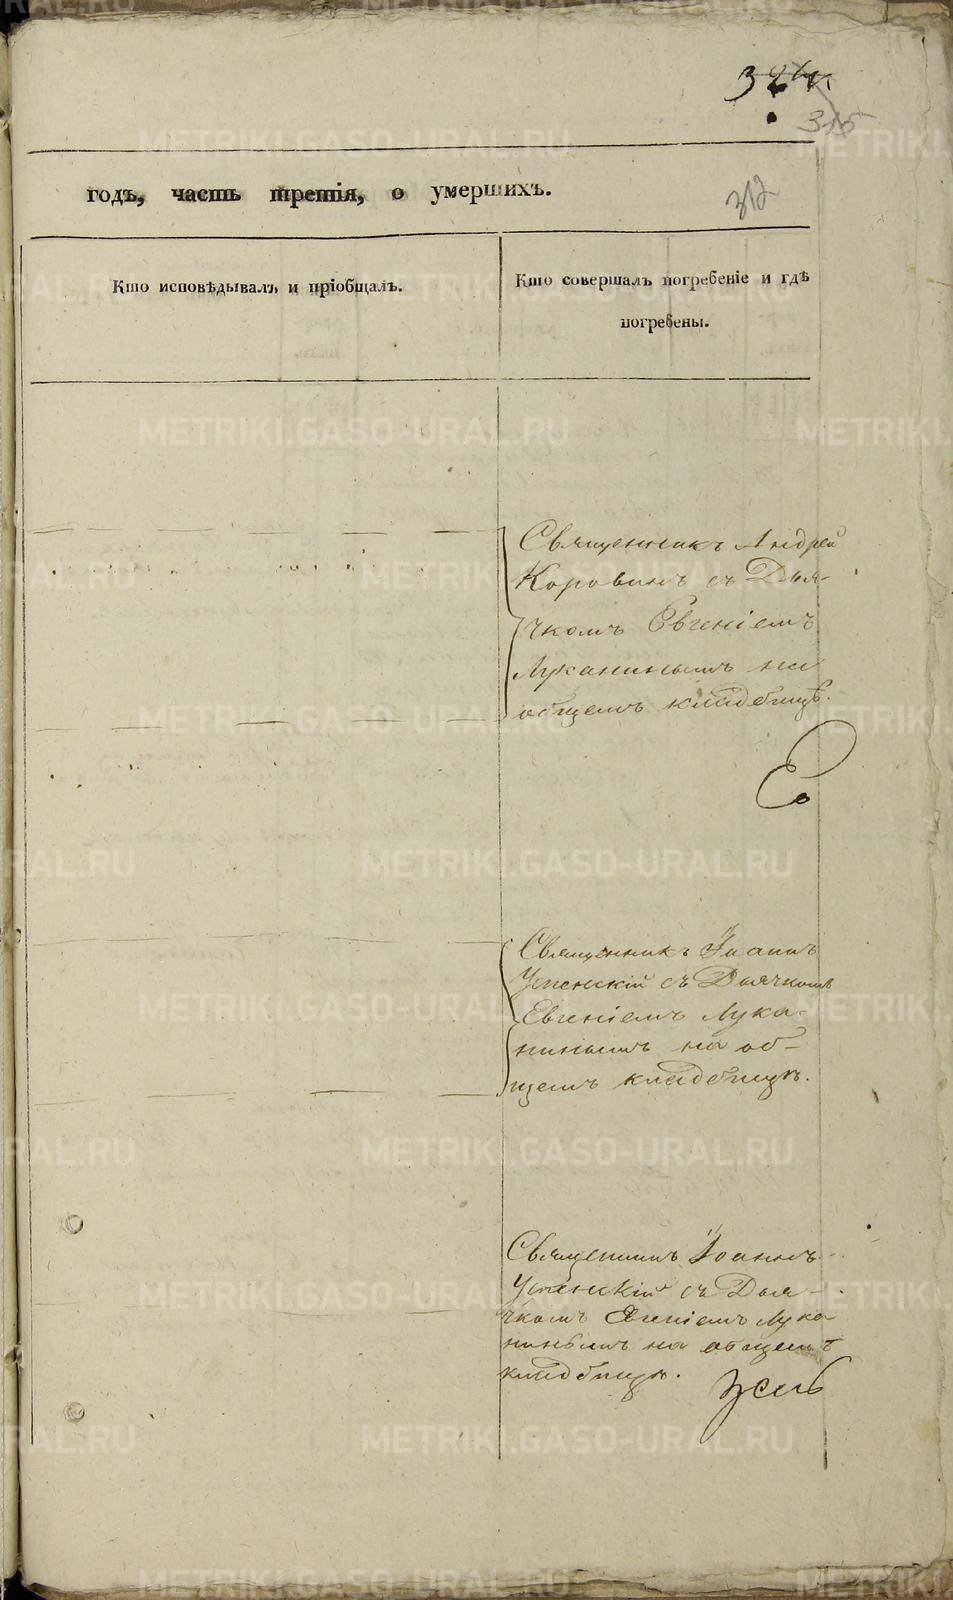 315
312
годъ, часть третія, о умершихъ.
Кто исповѣдывалъ и пріобщалъ.
Кто совершалъ погребеніе и гдѣ
погребены.
Священникъ Андрей
Коровинъ съ Дья-
чкомъ Евгеніемъ
Луканинымъ на
общемъ кладбищѣ.
Священникъ Іоаннъ
Успенскій съ Дьячкомъ
Евгеніемъ Лука-
нинымъ на об-
щемъ кладбищѣ.
Священникъ Іоаннъ
Успенскій съ Дья-
чкомъ Евгеніемъ Лука
нинымъ на общемъ
кладбищѣ.
METRIKI.GASO-URAL.RU